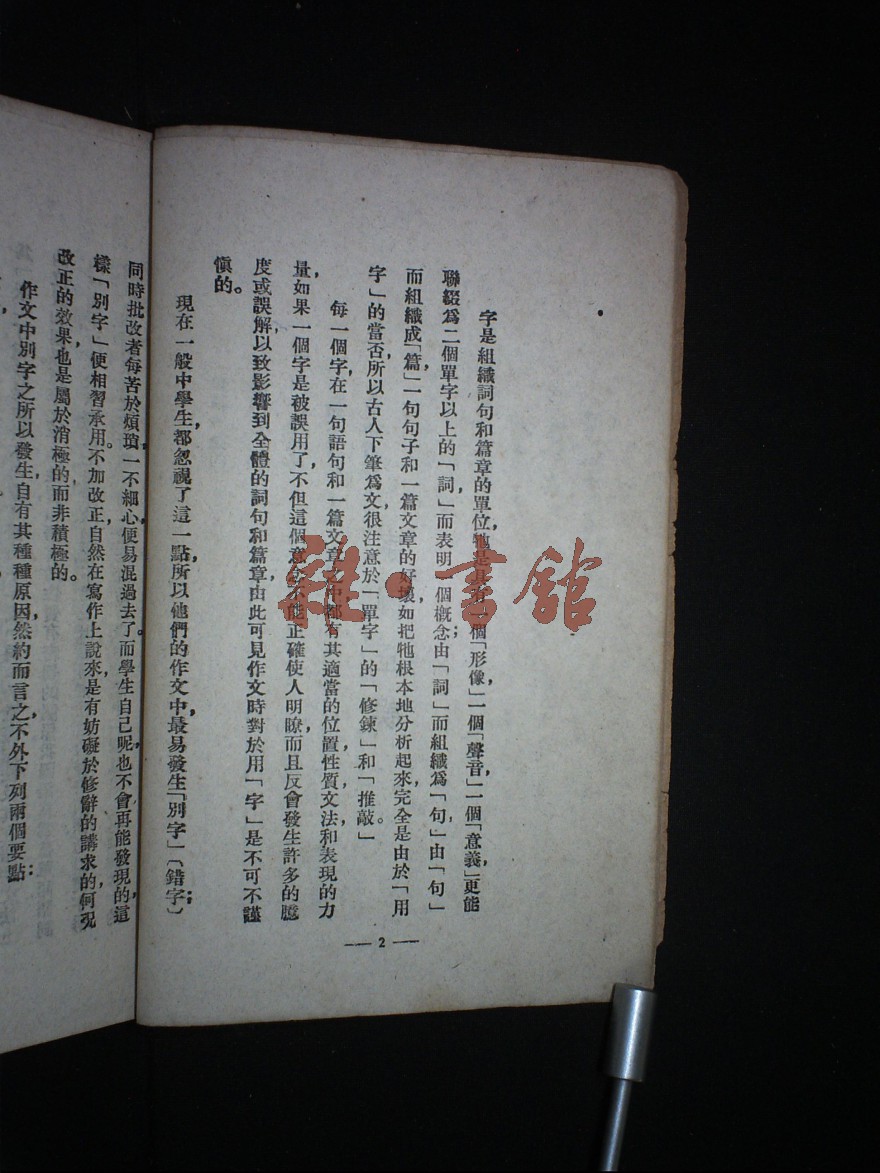 字是組織詞句和篇章的單位,牠是具有一個「形像」,一個「聲音」,一個「意義」,更能
聯綴為二個單字以上的「詞」,而表明一個概念;由「詞」而組織為「句」,由「句」
而組織成「篇」,一句句子和一篇文章的好壞,如把牠根本地分析起來,完全是由於「用
字」的當否,所以古人下筆為文,很注意於「單字」的「修鍊」和「推敲」。
每一個字,在一句語句和一篇文章之中,都有其適當的位置,性質,文法和表現的力
量,如果一個字是被誤用了,不但這個意念不能正確使人明瞭,而且反會發生許多的臆
度或誤解,以致影響到全體的詞句和篇章,由此可見作文時對於用「字」是不可不謹
慎的。
現在一般中學生,都忽視了這一點,所以他們的作文中,最易發生「別字」(錯字);
同時批改者每苦於煩瑣,一不細心,便易混過去了。而學生自己呢,也不會再能發現的,這
樣「別字」便相習承用,不加改正,自然在寫作上說來,是有妨礙於修辭的講求的,何況
改正的效果,也是屬於消極的,而非積極的。
作文中別字之所以發生,自有其種種原因,然約而言之,不外下列兩個要點:
— 2 —
雜·書館